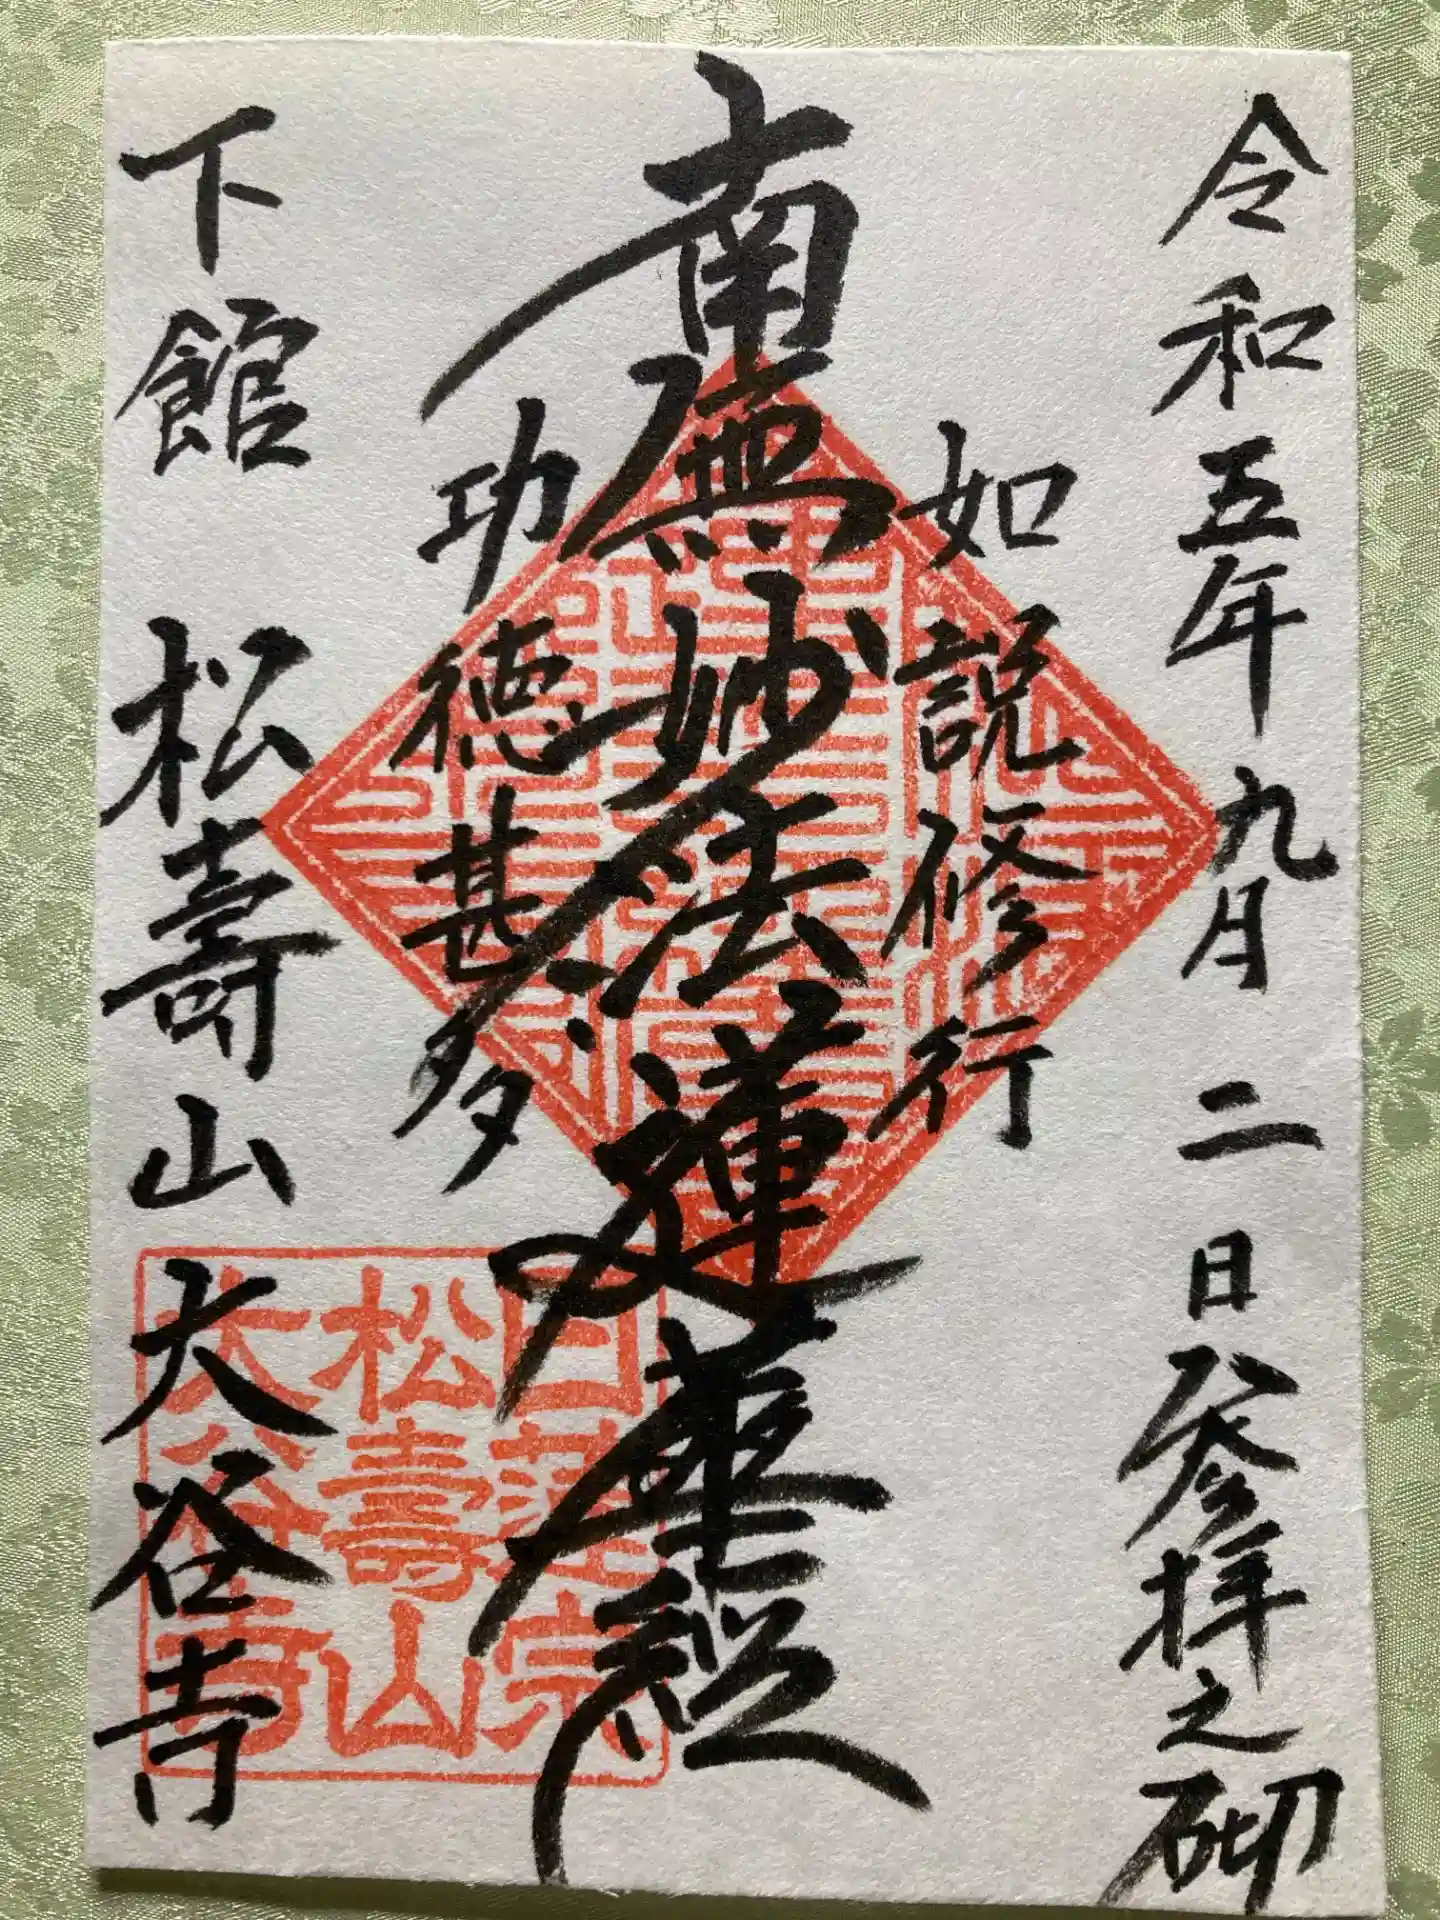 令和五年九月二日 參拝之砌
如説修行
南無妙法蓮華経
功徳甚多
下館 松壽山 大谷寺
日蓮宗
松壽山
大谷寺